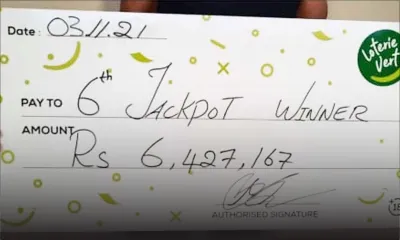 Date: 03.11.21
Loterie
Vert
PAY TO 6th JACKPOT WINNER
AMOUNT Rs 6,427,167
AUTHORISED SIGNATURE
18